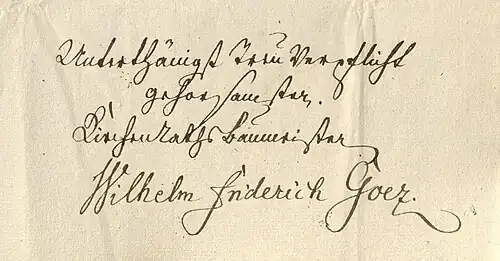 Unterthänigst Treu Verpflicht
gehorsamster.
KirchenRaths Baumeister
Wilhelm Friderich Goez.